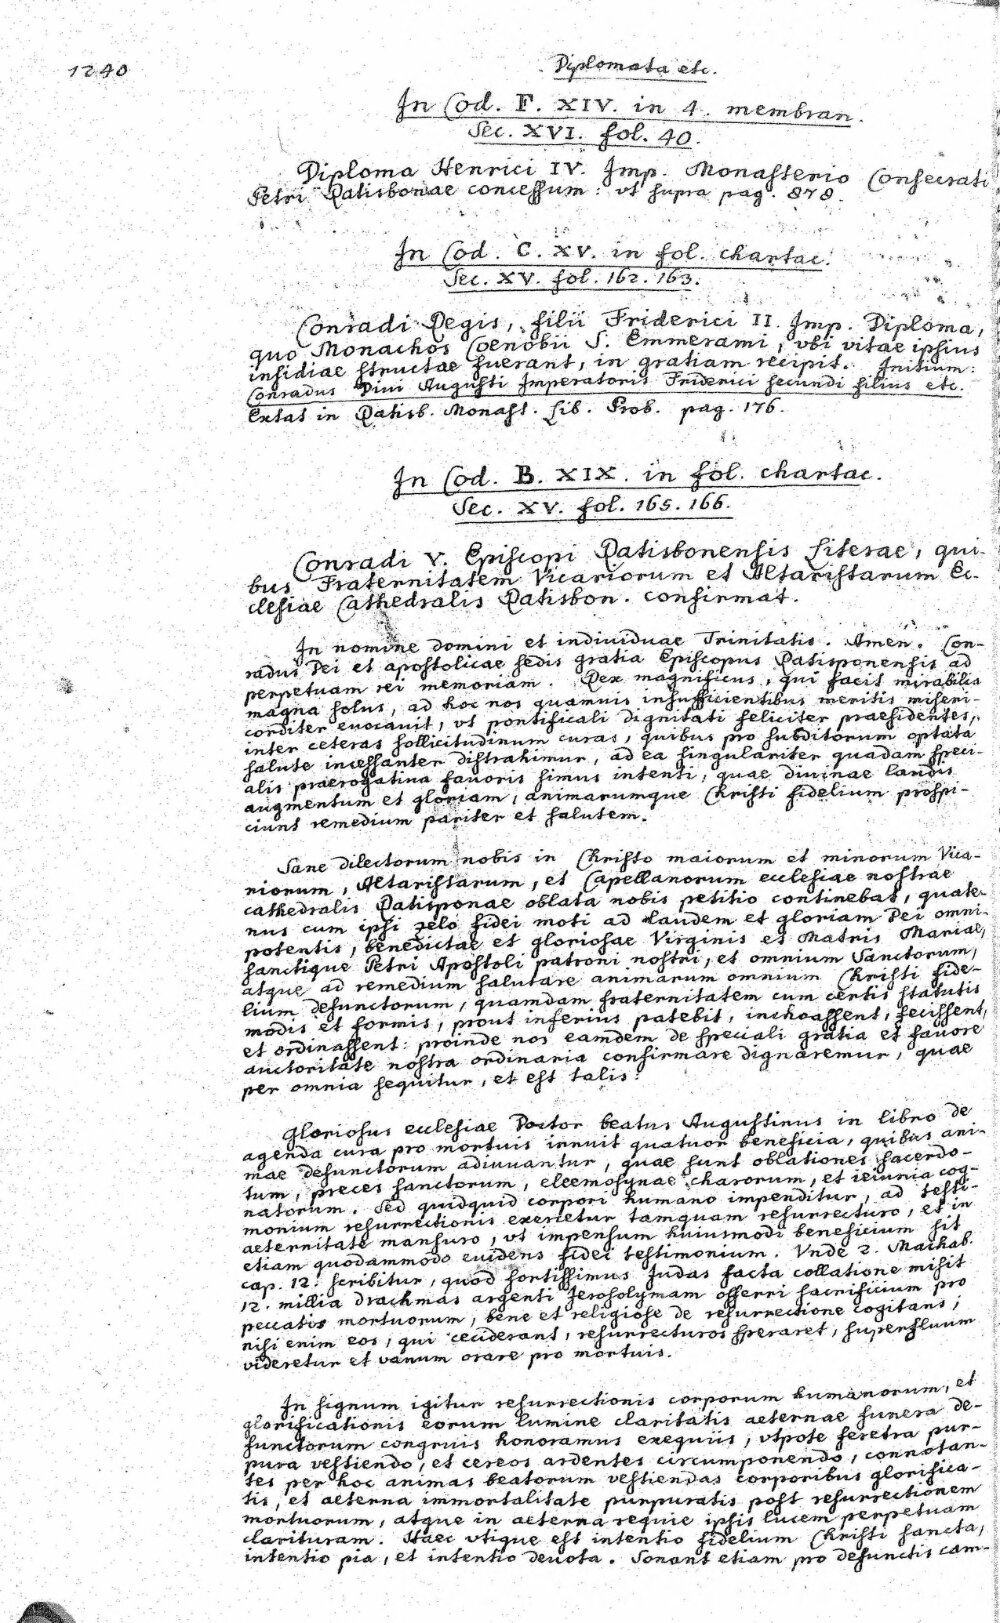 1240
Diplomata etc.
In Cod. F. XIV. in 4. membran.
Sec. XVI. fol. 40.
Diploma Henrici IV. Imp. Monasterio Consecrati
Petri Ratisbonae concessum: vt supra pag. 878.
In Cod. C. XV. in fol. chartac.
Sec. XV. fol. 162. 163.
Conradi Regis, filii Friderici II. Imp. Diploma,
quo Monachos Coenobii S. Emmerami, vbi vitae ipsius
insidiae structae fuerant, in gratiam recipit. Initium:
Conradus Divi Augusti Imperatoris Friderici secundi filius etc.
Extat in Ratisb. Monast. Lib. Prob. pag. 176.
In Cod. B. XIX. in fol. chartac.
Sec. XV. fol. 165. 166.
Conradi V. Episcopi Ratisbonensis Literae, qui-
bus Fraternitatem Vicariorum et Altaristarum Ec-
clesiae Cathedralis Ratisbon. confirmat.
In nomine domini et individuae Trinitatis. Amen. Con-
radus Dei et apostolicae sedis gratia Episcopus Ratisponensis ad
perpetuam rei memoriam. Rex magnificus, qui facit mirabilia
magna solus, ad hoc nos quamuis insufficientibus meritis miseri-
corditer euocauit, vt pontificali dignitati feliciter praesidentes,
inter ceteras sollicitudinum curas, quibus pro subditorum optata
salute incessanter distrahimur, ad ea singulariter quadam speci-
alis praerogatiua fauoris simus intenti, quae diuinae laudis
augmentum et gloriam, animarumque Christi fidelium prospi-
ciunt remedium pariter et salutem.
Sane dilectorum nobis in Christo maiorum et minorum Vica-
riorum, Altaristarum, et Capellanorum ecclesiae nostrae
cathedralis Ratisponae oblata nobis petitio continebat, quate-
nus cum ipsi zelo fidei moti ad laudem et gloriam Dei omni-
potentis, benedictae et gloriosae Virginis et Matris Mariae,
sanctique Petri Apostoli patroni nostri, et omnium Sanctorum,
atque ad remedium salutare animarum omnium Christi fide-
lium defunctorum, quamdam fraternitatem cum certis statutis
modis et formis, prout inferius patebit, inchoassent, fecissent,
et ordinassent: proinde nos eamdem de speciali gratia et fauore
auctoritate nostra ordinaria confirmare dignaremur, quae
per omnia sequitur, et est talis:
Gloriosus ecclesiae Doctor beatus Augustinus in libro de
agenda cura pro mortuis innuit quatuor beneficia, quibus ani-
mae defunctorum adiuuantur, quae sunt oblationes sacerdo-
tum, preces sanctorum, eleemosynae charorum, et ieiunia cog-
natorum. Sed quidquid corpori humano impenditur, ad testi-
monium resurrectionis exerietur tamquam resurrecturo, et in
aeternitate mansuro, vt impensum huiusmodi beneficium sit
etiam quodammodo euidens fidei testimonium. Vnde 2. Machab.
cap. 12. scribitur, quod fortissimus Iudas facta collatione misit
12. millia drachmas argenti Ierosolymam offerri sacrificium pro
peccatis mortuorum, bene et religiose de resurrectione cogitans;
nisi enim eos, qui ceciderant, resurrecturos speraret, superfluum
videretur et vanum orare pro mortuis.
In signum igitur resurrectionis corporum humanorum, et
glorificationis eorum lumine claritatis aeternae funera de-
functorum congruis honoramus exequiis, vtpote feretra pur-
pura vestiendo, et cereos ardentes circumponendo, connotan-
tes per hoc animas beatorum vestiendas corporibus glorifica-
tis, et aeterna immortalitate purpuratis post resurrectionem
mortuorum, atque in aeterna requie ipsis lucem perpetuam
clarituram. Haec vtique est intentio fidelium Christi sancta,
intentio pia, et intentio deuota. Sonant etiam pro defunctis cam-